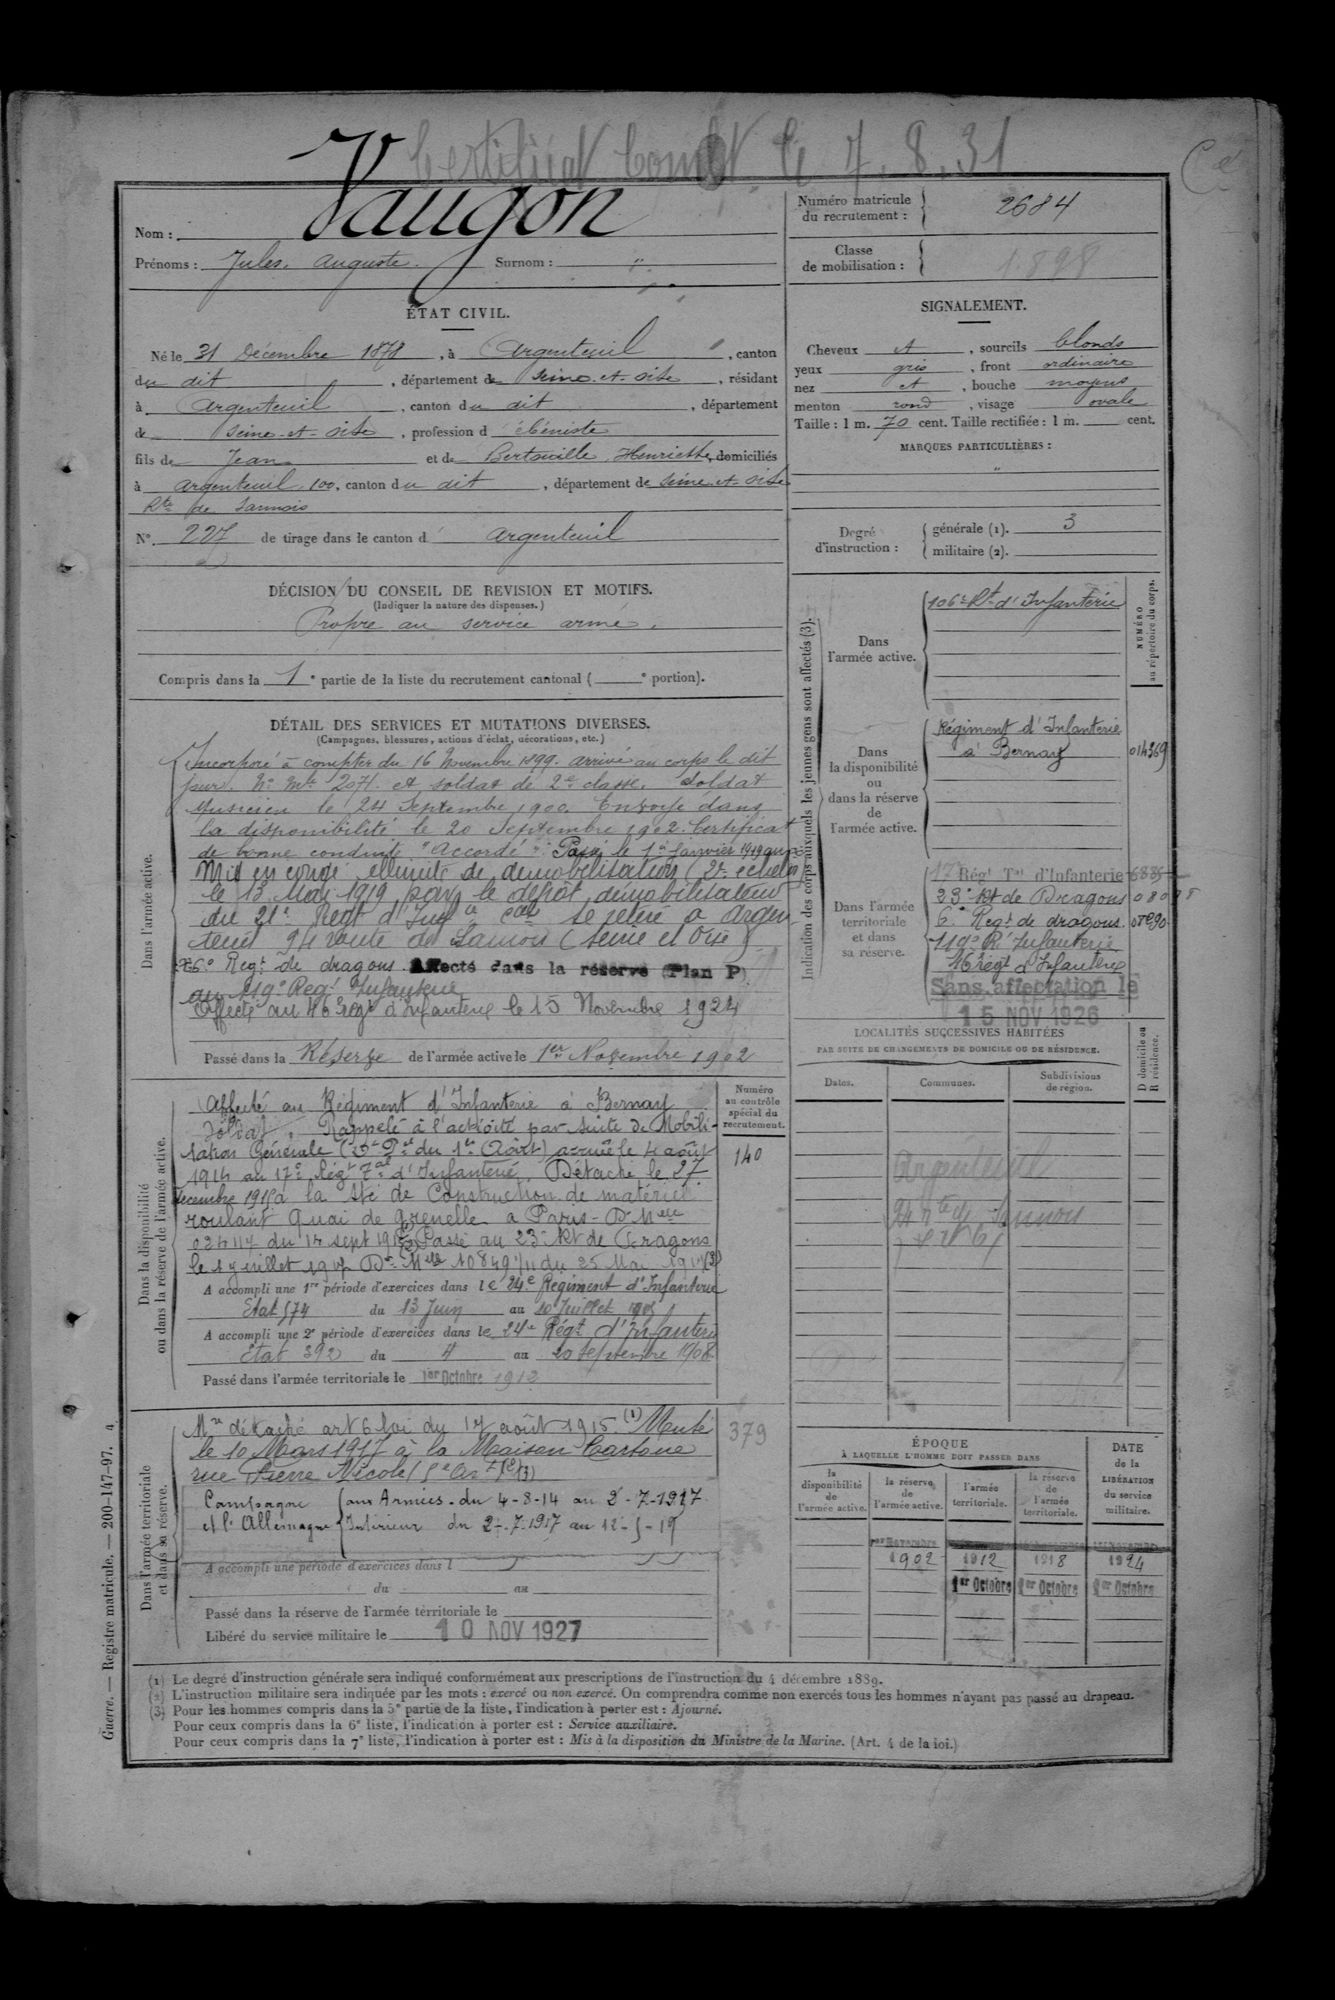 Certificat Comb^t le 7.8.31
Nom : Vaugon
Prénoms : Jules, Auguste. Surnom : "
Numéro matricule du recrutement : 2684
Classe de mobilisation : 1898
ÉTAT CIVIL.
Né le 31 Décembre 1878, à Argenteuil, canton
du dit, département de Seine-et-Oise, résidant
à Argenteuil, canton du dit, département
de Seine-et-Oise, profession d ébéniste
fils de Jean et de Henriette, domiciliés
à Argenteuil 100, canton du dit, département de Seine-et-Oise
Rte de Sannois
N° 227 de tirage dans le canton d' Argenteuil
SIGNALEMENT.
Cheveux et, sourcils blonds
yeux gris, front ordinaire
nez et, bouche moyens
menton rond, visage ovale
Taille : 1 m. 70 cent. Taille rectifiée : 1 m. cent.
MARQUES PARTICULIÈRES :
"
Degré d'instruction : générale (1). 3
militaire (2).
DÉCISION DU CONSEIL DE REVISION ET MOTIFS.
(Indiquer la nature des dispenses.)
Propre au service armé.
Compris dans la 1e partie de la liste du recrutement cantonal ( e portion).
DÉTAIL DES SERVICES ET MUTATIONS DIVERSES.
(Campagnes, blessures, actions d'éclat, décorations, etc.)
Dans l'armée active.
Incorporé à compter du 16 Novembre 1899. arrivé au corps le dit
jour. N° Mle 2071. et soldat de 2e classe. Soldat
Musicien le 24 Septembre 1900. Envoyé dans
la disponibilité le 20 Septembre 1902. Certificat
de bonne conduite "Accordé". Passé le 1er Janvier 1919 au
Mis en congé illimité de démobilisation (2e echelon)
le 13 Mai 1919 par le dépôt démobilisateur
du 21e Régt d'Inf ie Cale se retire a Argen
teuil 94 route de Sannois (Seine et Oise)
6e Regt de dragons. Affecté dans la réserve (Plan P)
au 119e Regt Infanterie
Affecté au 46e régt d'Infanterie le 15 Novembre 1924
Passé dans la Réserve de l'armée active le 1er Novembre 1902
Indication des corps auxquels les jeunes gens sont affectés (3).
NUMÉRO au répertoire du corps.
Dans l'armée active. 106e Rt d'Infanterie
Dans la disponibilité ou dans la réserve de l'armée active.
Régiment d'Infanterie
à Bernay 014369
Dans l'armée territoriale et dans sa réserve.
17e Régt Tal d'Infanterie
23e Rt de Dragons
6e Regt de dragons.
119e Rt Infanterie
46 régt d'Infanterie
Sans affectation le
15 NOV 1926
LOCALITÉS SUCCESSIVES HABITÉES
PAR SUITE DE CHANGEMENTS DE DOMICILE OU DE RÉSIDENCE.
Dates. Communes. Subdivisions de région. D domicile ou R résidence.
Argenteuil
94 rte de Sannois
Dans la disponibilité ou dans la réserve de l'armée active.
Numéro au contrôle spécial du recrutement.
140
Affecté au Régiment d'Infanterie à Bernay
Soldat. Rappelé à l'activité par suite de Mobili-
sation Générale (Dt Pt du 1er Août) arrivé le 4 août
1914 au 17e Régt Tal d'Infanterie. Détaché le 27
Décembre 1915 à la Sté de Construction de matériel
roulant Quai de Grenelle a Paris - D. Mlle
02411 du 14 sept 1915 Passé au 23e Rt de Dragons
le 1 juillet 1917 Don Mlle 10849 du 25 Mai 1917 (3)
A accompli une 1re période d'exercices dans le 24e Régiment d'Infanterie
Etat 574 du 13 Juin au 10 Juillet 1905
A accompli une 2e période d'exercices dans le 24e Régt d'Infanterie
Etat 392 du 4 au 20 septembre 1908
Passé dans l'armée territoriale le 1er Octobre 1912
Dans l'armée territoriale et dans sa réserve.
379
détaché art 6 loi du 17 août 1915. (1) Muté
le 10 Mars 1917 à la Maison
rue Pierre Nicole
Campagne aux Armées - du 4-8-14 au 2-7-1917
et l'Allemagne Intérieur du 2-7-1917 au 12-5-19
A accompli une période d'exercices dans l
du au
Passé dans la réserve de l'armée territoriale le
Libéré du service militaire le 10 NOV 1927
ÉPOQUE
À LAQUELLE L'HOMME DOIT PASSER DANS
la disponibilité de l'armée active. la réserve de l'armée active. l'armée territoriale. la réserve de l'armée territoriale.
DATE de la LIBÉRATION du service militaire.
1er Novembre
1902 1912 1918 1924
1er Octobre 1er Octobre 1er Octobre
(1) Le degré d'instruction générale sera indiqué conformément aux prescriptions de l'instruction du 4 décembre 1889.
(2) L'instruction militaire sera indiquée par les mots : exercé ou non exercé. On comprendra comme non exercés tous les hommes n'ayant pas passé au drapeau.
(3) Pour les hommes compris dans la 5e partie de la liste, l'indication à porter est : Ajourné.
Pour ceux compris dans la 6e liste, l'indication à porter est : Service auxiliaire.
Pour ceux compris dans la 7e liste, l'indication à porter est : Mis à la disposition du Ministre de la Marine. (Art. 4 de la loi.)
Guerre. — Registre matricule. — 200-147-97. 4